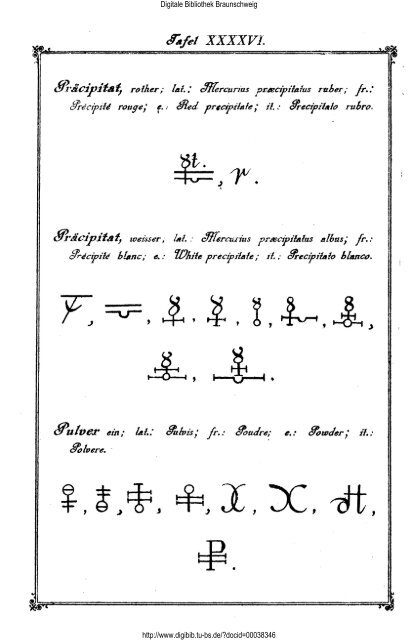 Digitale Bibliothek Braunschweig
Tafel XXXXVI.
Präcipitat, rother; lat.: Mercurius præcipitatus ruber; fr.:
Précipité rouge; e.: Red precipitate; it.: Precipitato rubro.
Präcipitat, weisser, lat.: Mercurius præcipitatus albus; fr.:
Précipité blanc; e.: White precipitate; it.: Precipitato blanco.
Pulver ein; lat.: Pulvis; fr.: Poudre; e.: Powder; it.:
Polvere.
http://www.digibib.tu-bs.de/?docid=00038346